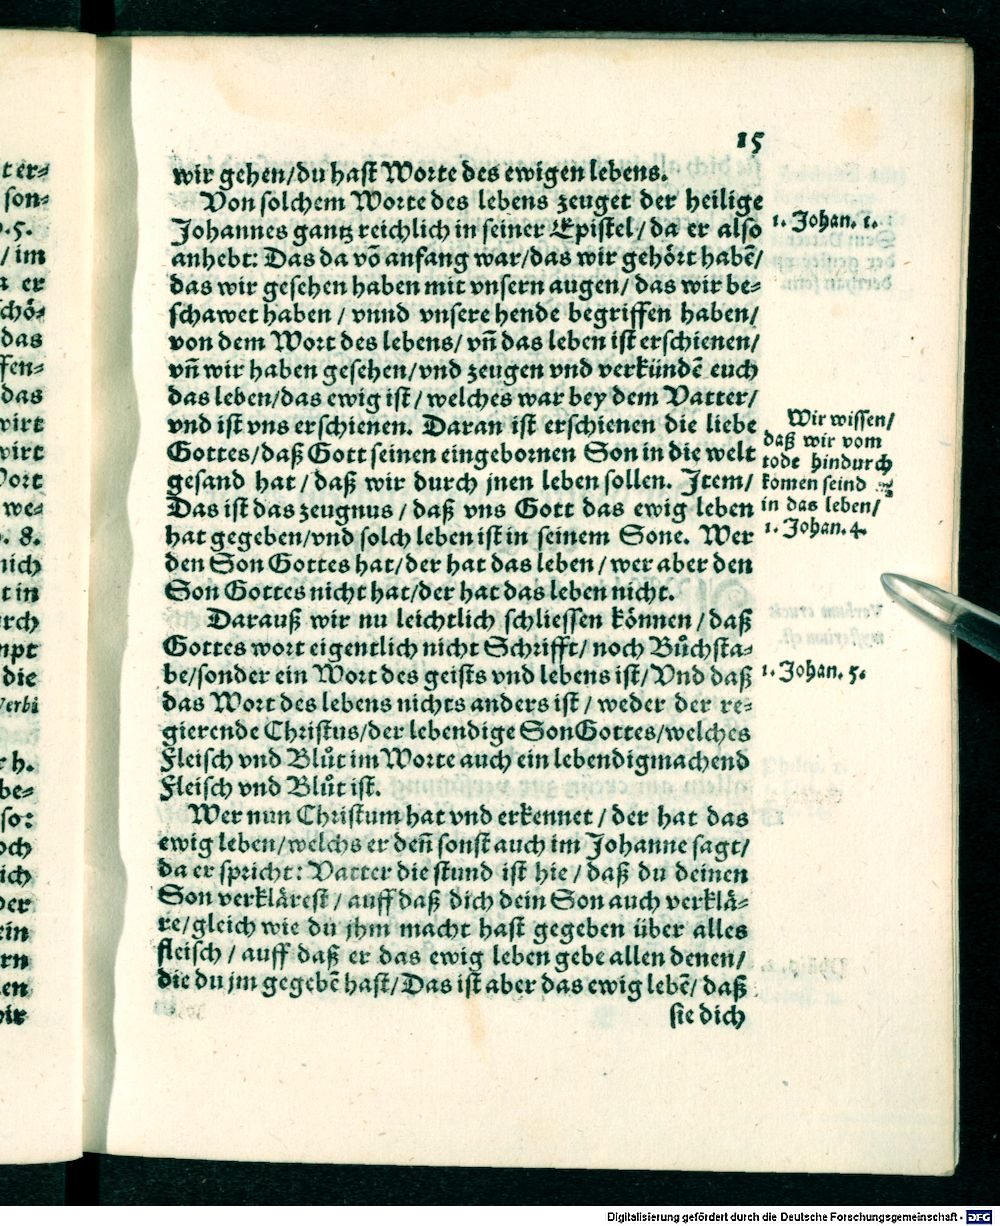 15
wir gehen/du hast Worte des ewigen lebens.
Von solchem Worte des lebens zeuget der heilige
Johannes gantz reichlich in seiner Epistel/ da er also
anhebt: Das da vō anfang war/das wir gehört habē/
das wir gesehen haben mit vnsern augen/ das wir be⸗
schawet haben / vnnd vnsere hende begriffen haben/
von dem Wort des lebens/ vñ das leben ist erschienen/
vñ wir haben gesehen/vnd zeugen vnd verkündē euch
das leben/das ewig ist/ welches war bey dem Vatter/
vnd ist vns erschienen. Daran ist erschienen die liebe
Gottes/daß Gott seinen eingebornen Son in die welt
gesand hat / daß wir durch jnen leben sollen. Item/
Das ist das zeugnus / daß vns Gott das ewig leben
hat gegeben/vnd solch leben ist in seinem Sone. Wer
den Son Gottes hat/der hat das leben / wer aber den
Son Gottes nicht hat/der hat das leben nicht.
Darauß wir nu leichtlich schliessen können / daß
Gottes wort eigentlich nicht Schrifft/ noch Bůchsta⸗
be/sonder ein Wort des geists vnd lebens ist/ Vnd daß
das Wort des lebens nichts anders ist / weder der re⸗
gierende Christus/der lebendige Son Gottes/welches
Fleisch vnd Blůt im Worte auch ein lebendigmachend
Fleisch vnd Blůt ist.
Wer nun Christum hat vnd erkennet / der hat das
ewig leben/welchs er deñ sonst auch im Johanne sagt/
da er spricht: Vatter die stund ist hie / daß du deinen
Son verklärest / auff daß dich dein Son auch verklä⸗
re/gleich wie du jhm macht hast gegeben über alles
fleisch / auff daß er das ewig leben gebe allen denen/
die du jm gegebē hast/ Das ist aber das ewig lebē/ daß
sie dich
1. Johan. 1.
Wir wissen/
daß wir vom
tode hindurch
komen seind
in das leben/
1. Johan. 4.
1. Johan. 5.
t er⸗
son⸗
5.
/ im
a er
schö⸗
das
ffen⸗
das
wirt
wirt
Wort
we⸗
. 8.
nich
t in
urch
mpt
die
Verbi
r h.
be⸗
so:
och
ich
der
ein
rn
en
wir
Digitalisierung gefördert durch die Deutsche Forschungsgemeinschaft - DFG